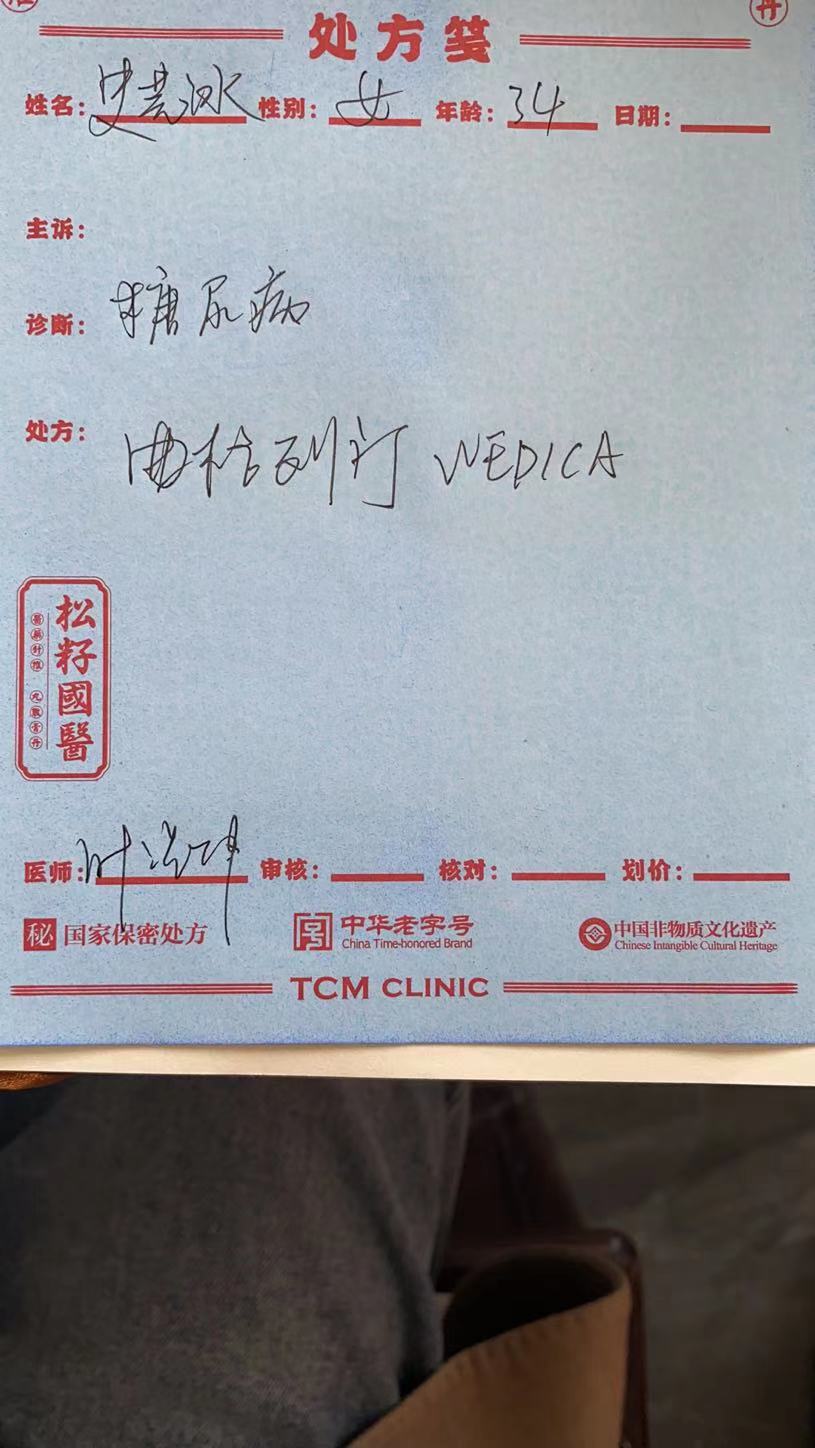 处方笺
姓名：史芸冰 性别：女 年龄：34 日期：
主诉：
诊断：糖尿病
处方：曲格列汀 WEDICA
松籽國醫
医师：叶 审核： 核对： 划价：
秘 国家保密处方
中华老字号
China Time-honored Brand
中国非物质文化遗产
Chinese Intangible Cultural Heritage
TCM CLINIC